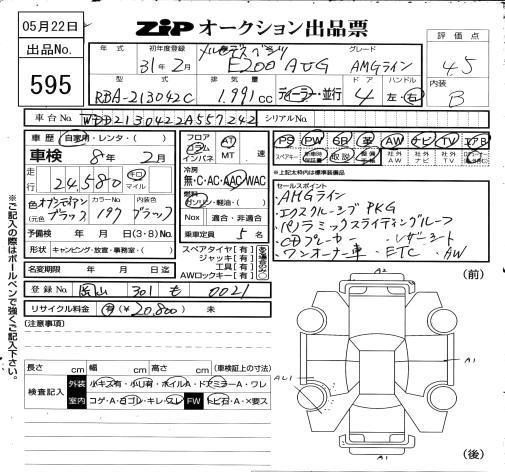 05月22日
ZIP オークション出品票
出品No.
595
年式 初年度登録 31年2月
メルセデスベンツ E200 AVG
グレード AMGライン
評価点 4.5
内装 B
型式 RBA-213042C
排気量 1.991cc
ディーラー・並行
ドア 4
ハンドル 左・右
車台No. WDD2130422A557242
シリアルNo.
車歴 自家用・レンタ・( )
車検 8年 2月
走行 24,580 キロ マイル
色 オブシディアンブラック (元色 ブラック )
カラーNo. 197
内装色 ブラック
予備検 年 月 日(3・8)No.
形状 キャンピング・放置・事務室・( )
名変期限 年 月 日迄
登録No. 岡山 301 も 0021
リサイクル料金 有(¥20,800) 未
フロア コラム インパネ
AT MT 速
冷房 無・C・AC・AAC・WAC
燃料 ガソリン・軽油・( )
Nox 適合・非適合
乗車定員 5名
スペアタイヤ【有】
ジャッキ【有】
工具【有】
AWロックキー【有】
PS PW SR 革 AW ナビ TV エアB
スペアキー 保証書 取説 社外AW 社外ナビ 社外TV
↑上記太枠内は標準装備品
セールスポイント
・AMGライン
・エクスクルーシブPKG
・パノラミックスライディングルーフ
・CDプレーヤー ・レザーシート
・ワンオーナー車 ・ETC ・AW
(注意事項)
長さ cm 幅 cm 高さ cm (車検証上の寸法)
検査記入 外装 小キズ有・小U有・ホイルA・ドアミラーA・ワレ
室内 コゲ・A・白ゴレ・キレ・スレ FW トビ石・A・X要ス
※ご記入の際はボールペンで強くご記入下さい。
(前)
A2
A1
A1
(後)